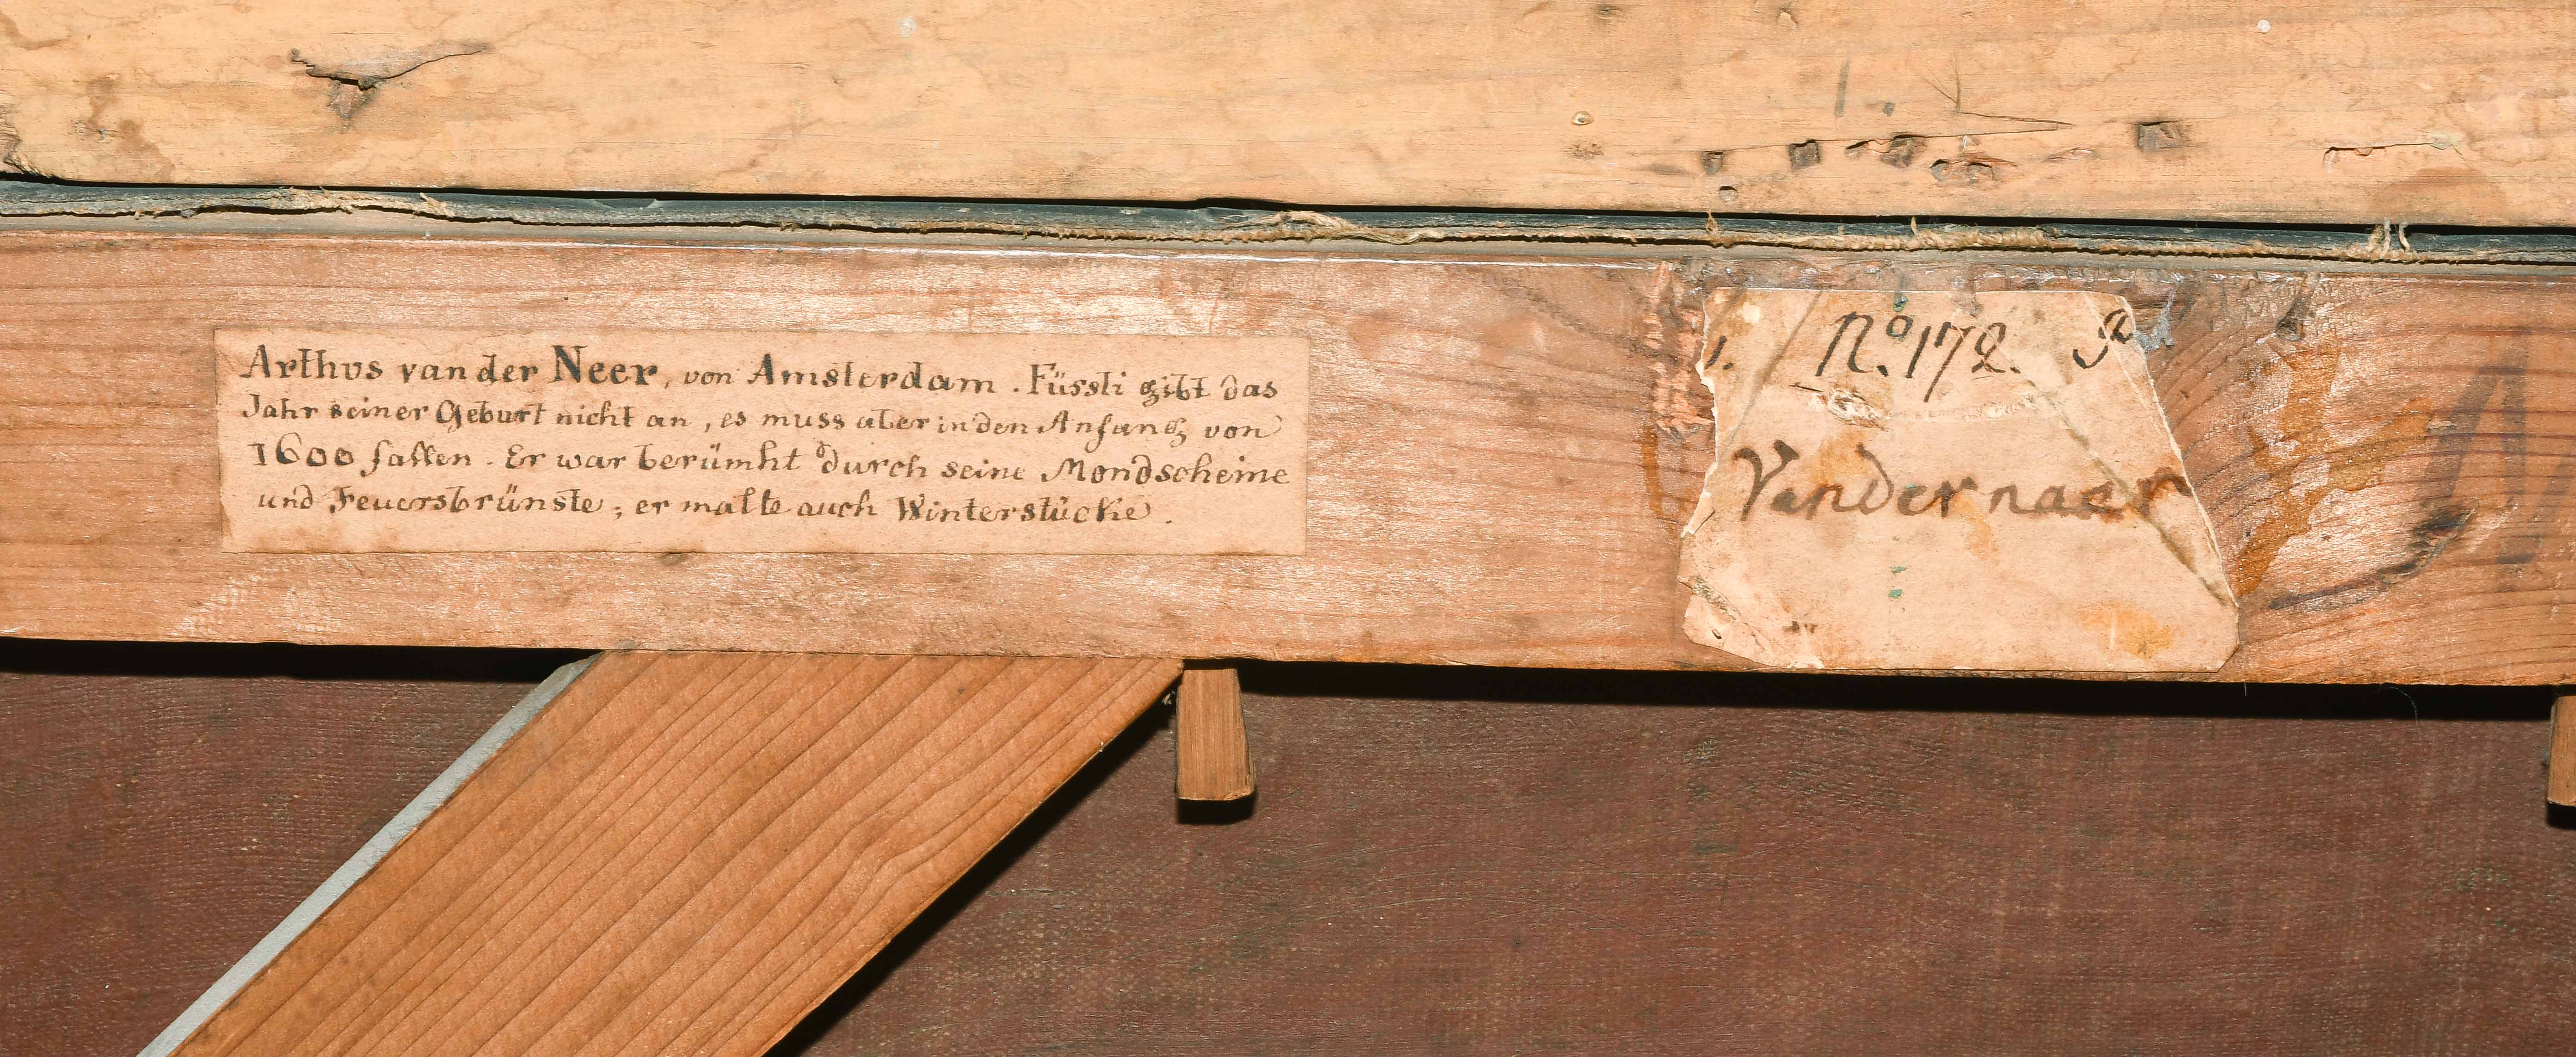 Arthus van der Neer, von Amsterdam. Füssli gibt das
Jahr seiner Geburt nicht an, es muss aber in den Anfang von
1600 fallen. Er war berümht durch seine Mondscheine
und Feuersbrünste; er malte auch Winterstücke.
No. 172.
Vandernaer